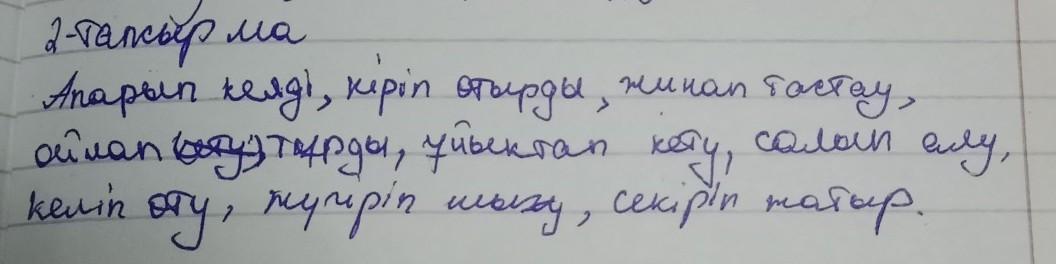 2-тапсырма
Апарып келді, кіріп отырды, жинап тастау,
ойлап (кету) тұрды, ұйықтап кету, салып алу,
келіп өту, жүгіріп шығу, секіріп жатыр.